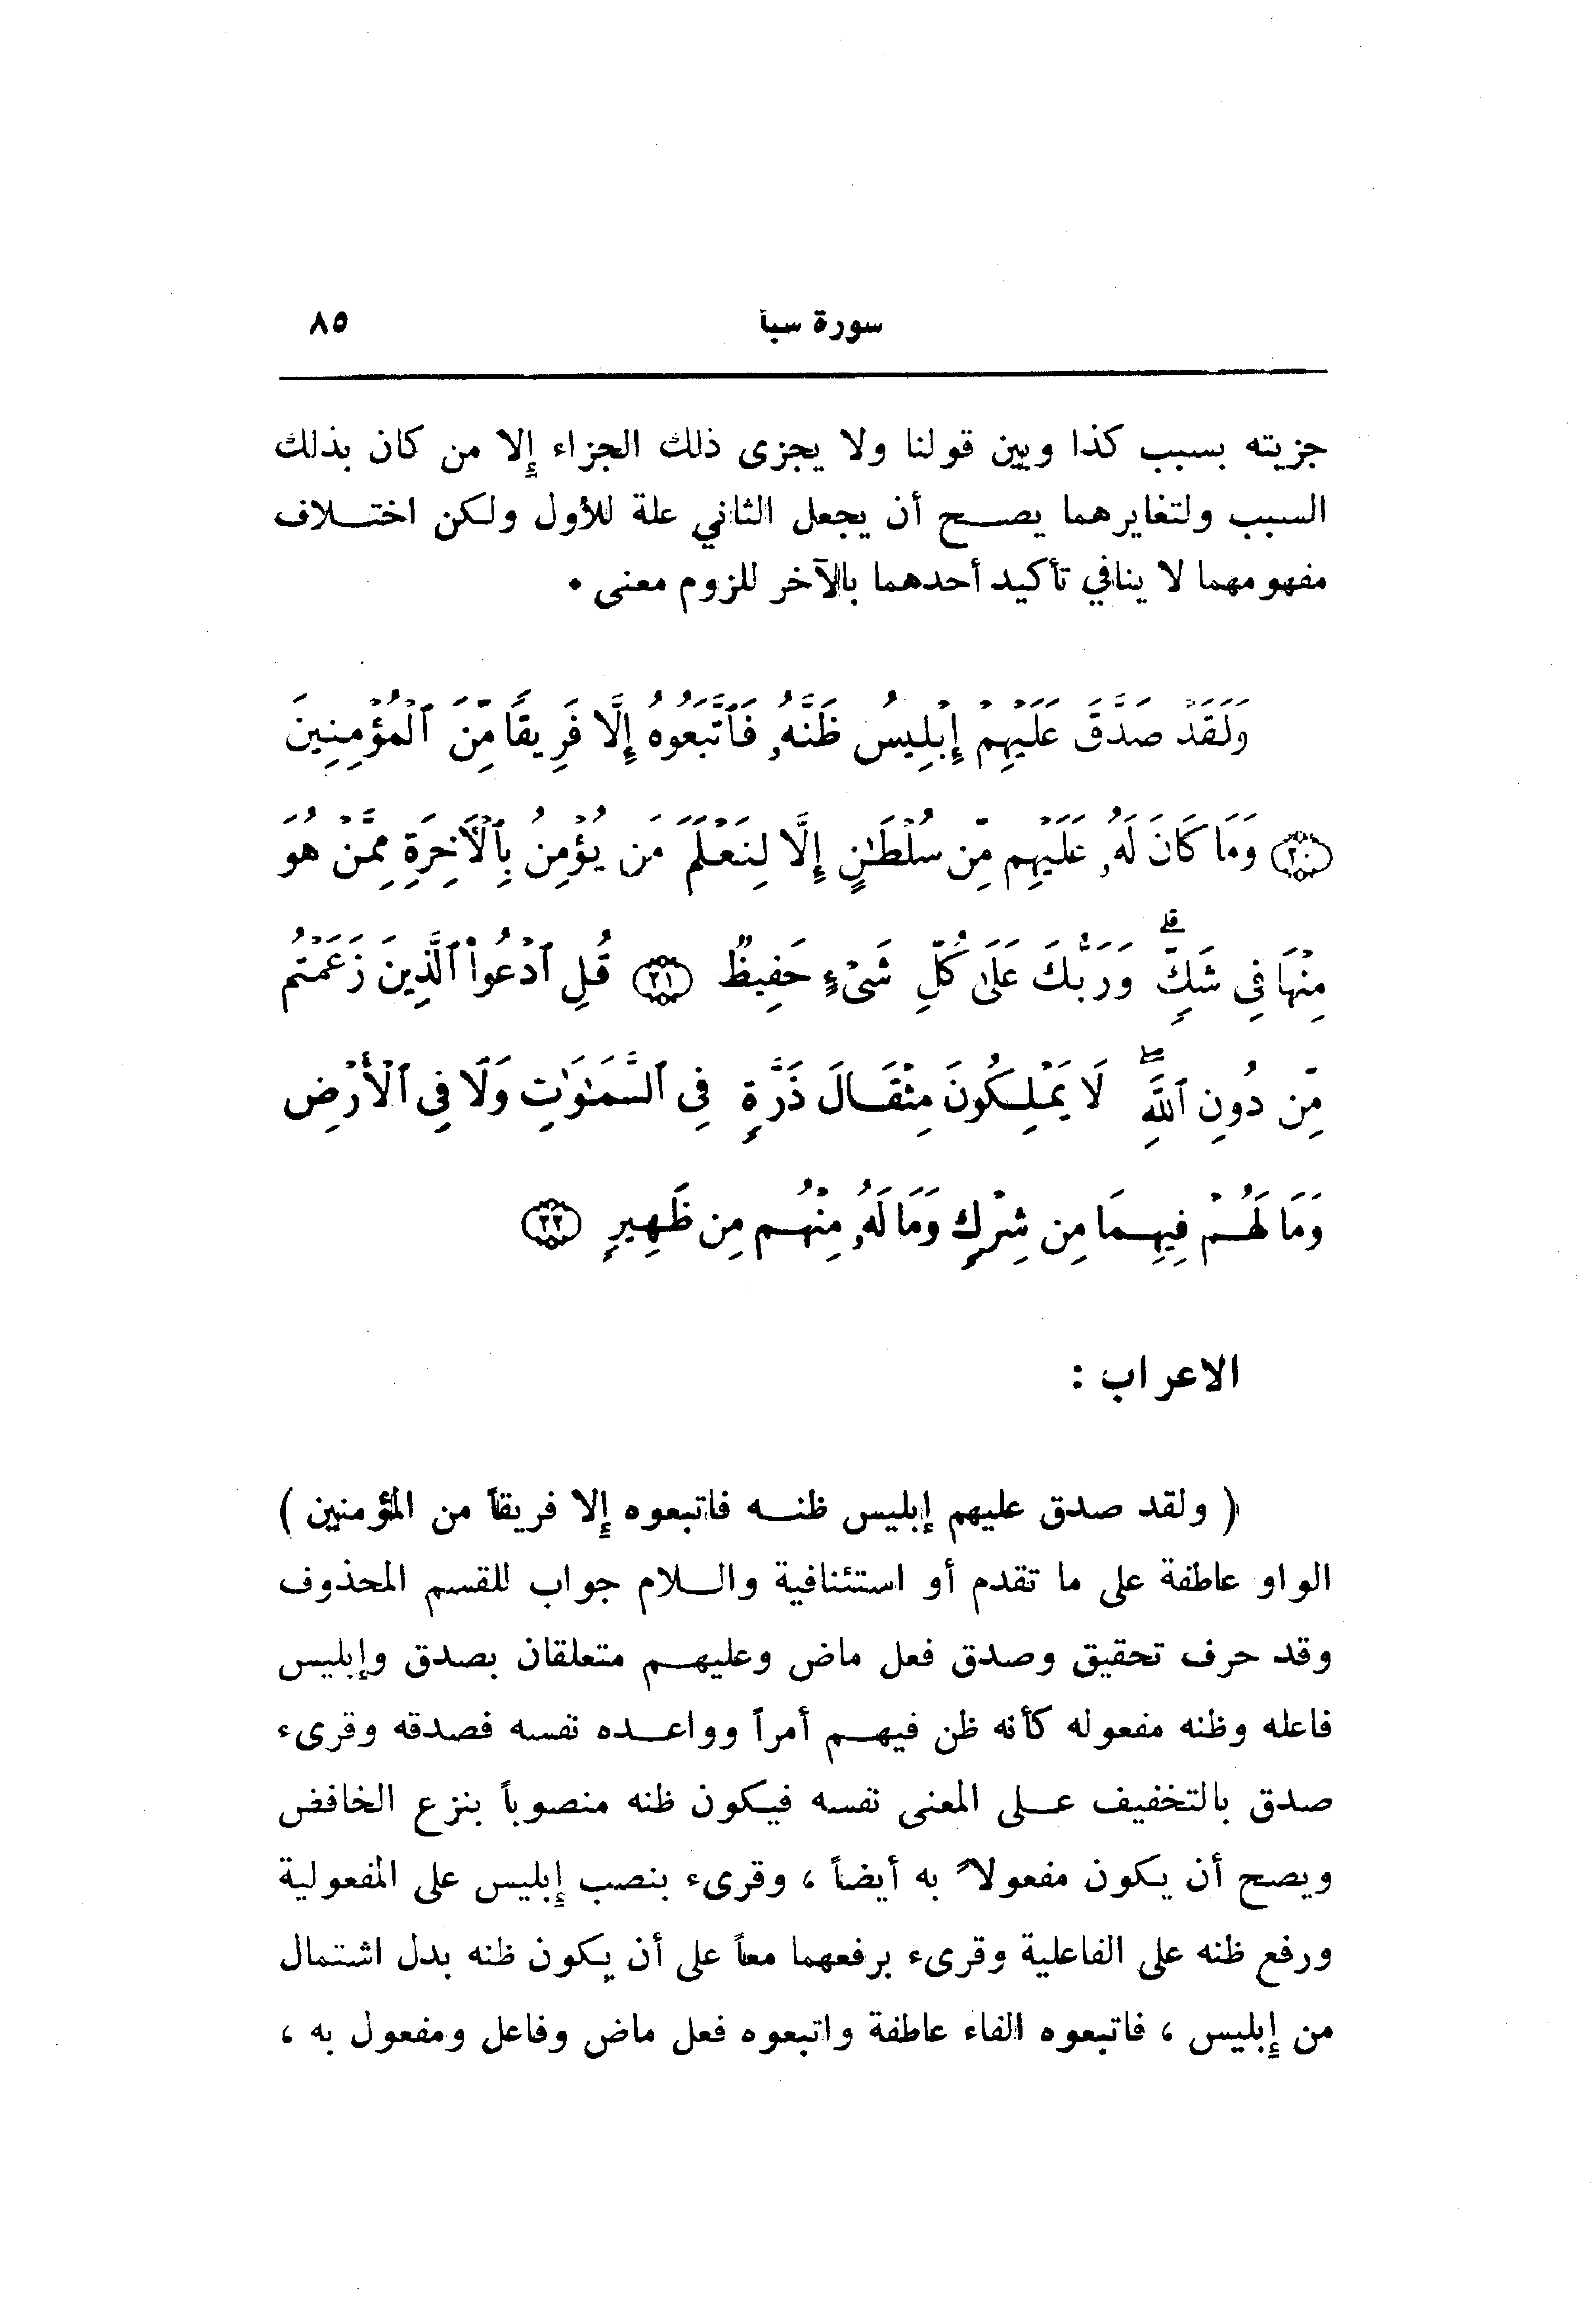 سورة سبأ ٨٥
جزيته بسبب كذا وبين قولنا ولا يجزى ذلك الجزاء إلا من كان بذلك
السبب ولتغايرهما يصح أن يجعل الثاني علة للأول ولكن اختلاف
مفهومهما لا ينافي تأكيد أحدهما بالآخر للزوم معنى .
وَلَقَدْ صَدَّقَ عَلَيْهِمْ إِبْلِيسُ ظَنَّهُۥ فَٱتَّبَعُوهُ إِلَّا فَرِيقًا مِّنَ ٱلْمُؤْمِنِينَ
(٢٠) وَمَا كَانَ لَهُۥ عَلَيْهِم مِّن سُلْطَٰنٍ إِلَّا لِنَعْلَمَ مَن يُؤْمِنُ بِٱلْآخِرَةِ مِمَّنْ هُوَ
مِنْهَا فِى شَكٍّ ۗ وَرَبُّكَ عَلَىٰ كُلِّ شَىْءٍ حَفِيظٌ (٢١) قُلِ ٱدْعُوا۟ ٱلَّذِينَ زَعَمْتُم
مِّن دُونِ ٱللَّهِ ۖ لَا يَمْلِكُونَ مِثْقَالَ ذَرَّةٍ فِى ٱلسَّمَٰوَٰتِ وَلَا فِى ٱلْأَرْضِ
وَمَا لَهُمْ فِيهِمَا مِن شِرْكٍ وَمَا لَهُۥ مِنْهُم مِن ظَهِيرٍ (٢٢)
الاعراب :
( ولقد صدق عليهم إبليس ظنه فاتبعوه إلا فريقاً من المؤمنين )
الواو عاطفة على ما تقدم أو استئنافية واللام جواب للقسم المحذوف
وقد حرف تحقيق وصدق فعل ماض وعليهم متعلقان بصدق وإبليس
فاعله وظنه مفعوله كأنه ظن فيهم أمراً وواعده نفسه فصدقه وقرىء
صدق بالتخفيف على المعنى نفسه فيكون ظنه منصوباً بنزع الخافض
ويصح أن يكون مفعولاً به أيضاً ، وقرىء بنصب إبليس على المفعولية
ورفع ظنه على الفاعلية وقرىء برفعهما معاً على أن يكون ظنه بدل اشتمال
من إبليس ، فاتبعوه الفاء عاطفة واتبعوه فعل ماض وفاعل ومفعول به ،